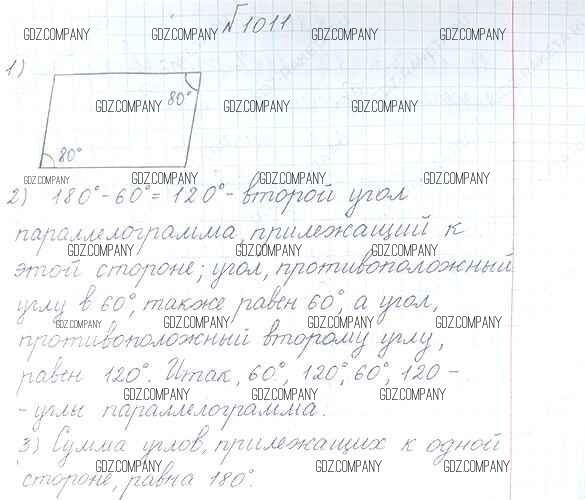 GDZ.COMPANY GDZ.COMPANY №1011 GDZ.COMPANY GDZ.COMPANY
1)
80°
GDZ.COMPANY GDZ.COMPANY GDZ.COMPANY
80°
GDZ.COMPANY GDZ.COMPANY GDZ.COMPANY GDZ.COMPANY
2) 180° - 60° = 120° - второй угол
параллелограмма, прилежащий к
GDZ.COMPANY GDZ.COMPANY GDZ.COMPANY
этой стороне; угол, противоположный
углу в 60°, также равен 60°, а угол,
GDZ.COMPANY GDZ.COMPANY GDZ.COMPANY GDZ.COMPANY
противоположный второму углу,
равен 120°. Итак, 60°, 120°, 60°, 120 -
GDZ.COMPANY GDZ.COMPANY GDZ.COMPANY
- углы параллелограмма.
3) Сумма углов, прилежащих к одной
GDZ.COMPANY GDZ.COMPANY GDZ.COMPANY
стороне, равна 180°.